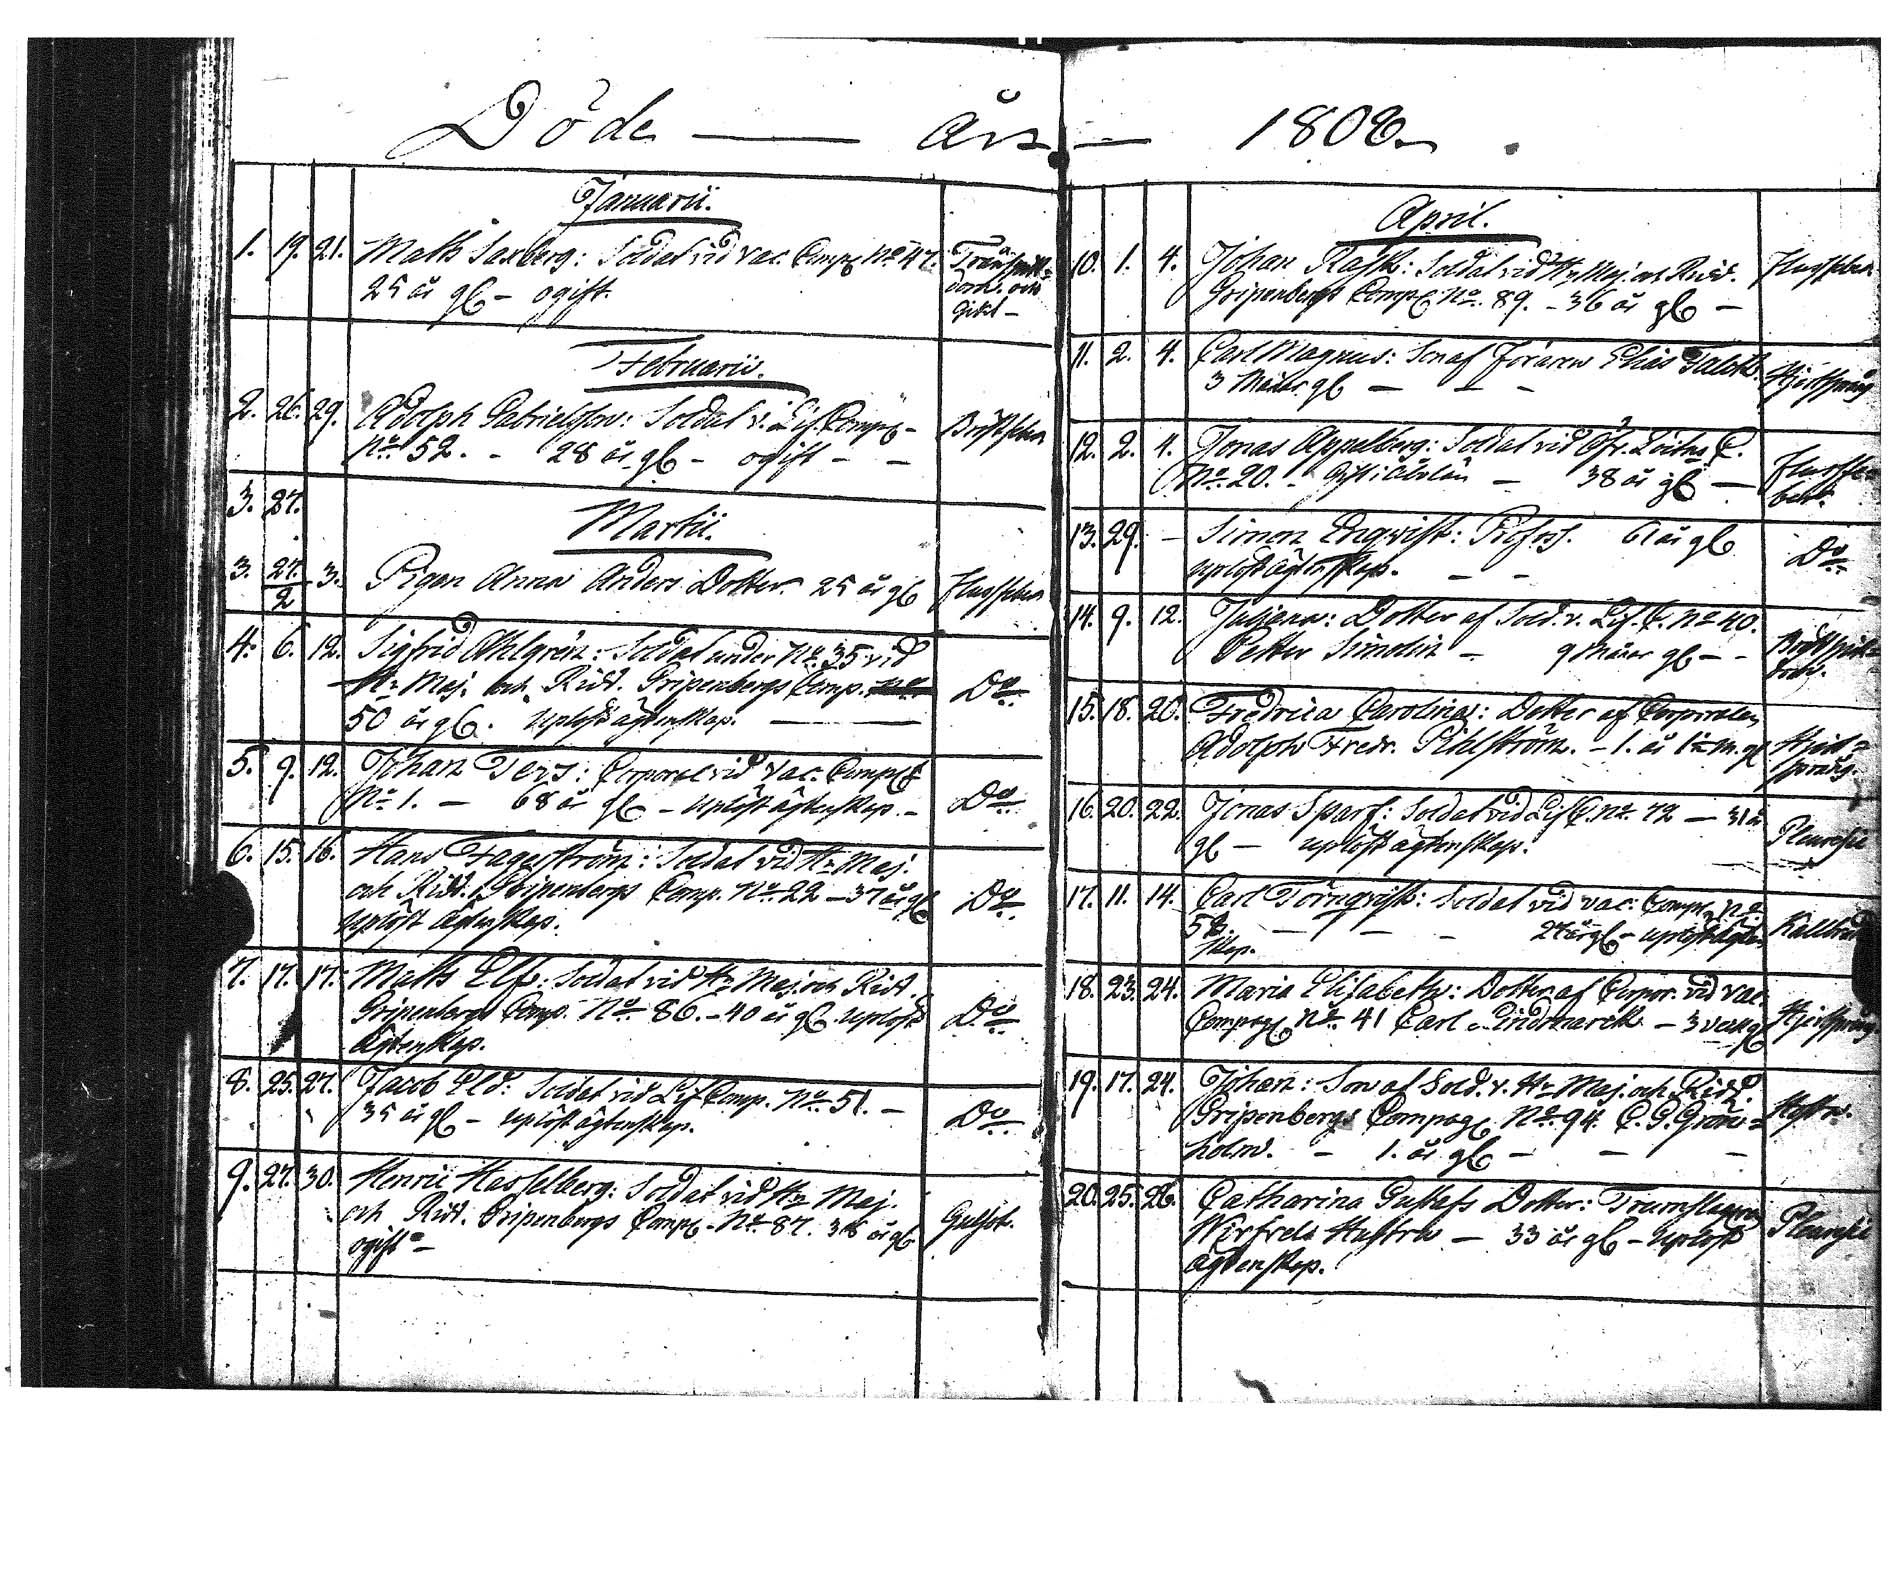 Döde — års — 1808.
Januarii.
1. 19. 21. Matts Saxberg: Soldat vid vac. Comp. No 47.
25 år gl – ogift. och Gikt –
Februarii.
2. 26. 29. Adolph Gabrielsson: Soldat v. Lif. Comp. –
No 52. – 28 år gl – ogift – – Bröstfeber
3. 27.
Martii.
3. 27/2 3. Pigan Anna Anders Dotter. 25 år gl Flussfeber
4. 6. 12. Sigfrid Ahlgren: Soldat under No 35 vid
Hr Maj. och Ridd. Gripenbergs Comp. No
50 år gl. uplöst ägtenskap. — Do
5. 9. 12. Johan Ters: Corporal vid Vac. Comp.
No 1. – 68 år gl – uplöst ägtenskap. – Do
6. 15. 16. Hans Fagerström: Soldat vid Hr Maj.
och Ridd. Gripenbergs Comp. No 22 – 37 år gl
uplöst ägtenskap. Do
7. 17. 17. Matts Elf: Soldat vid Hr Maj. och Ridd.
Gripenbergs Comp. No 86. – 40 år gl. uplöst
ägtenskap. Do
8. 25. 27. Jacob Eld: Soldat vid Lif Comp. No 51. –
35 år gl – uplöst ägtenskap. Do
9. 27. 30. Henric Hasselberg: Soldat vid Hr Maj.
och Ridd. Gripenbergs Comp. No 87. år gl
ogift – Gulsot.
April.
10. 1. 4. Johan Rask: Soldat vid Hr Maj. och Ridd.
Gripenbergs Comp. No 89. – 36 år gl – Flussfeber
11. 2. 4. Carl Magnus: Son af Föraren Elias
3 Månar gl – – – Hjertsprång
12. 2. 4. Jonas Appelberg: Soldat vid Öfr. C.
No 20. – Gift – 38 år gl – Flussfe=
ber.
13. 29. – Simon Enqvist: Profoss. 61 år gl
uplöst ägtenskap. – – Do
14. 9. 12. Juliana: Dotter af Sold. v. Lif. C. No 40.
Petter Simolin – 9 Månar gl – –
15. 18. 20. Fredrica Carolina: Dotter af Corporalen
Adolph Fredr. Pihlström. – 1. år m. gl Hjert=
språng.
16. 20. 22. Jonas Sparf: Soldat vid Lif C. No 72 – 31 år
gl – uplöst ägtenskap. Pleuresie
17. 11. 14. Carl Törnqvist: Soldat vid vac. Comp. No
– – – 27 år gl – uplöst ägten=
skap. Kallbrand
18. 23. 24. Maria Elisabeth: Dotter af Corpor. vid Vac.
Compag. No 41 Carl Lindmarck – 3 veck. gl Hjertsprång
19. 17. 24. Johan: Son af Sold. v. Hr Maj. och Ridd.
Gripenbergs Compag. No 94. C. G. Grön=
holm. – 1. år gl – – – Hosta.
20. 25. 26. Catharina Gustafs Dotter: Trumslagaren
Hustru – 33 år gl – uplöst
ägtenskap. Pleuresie